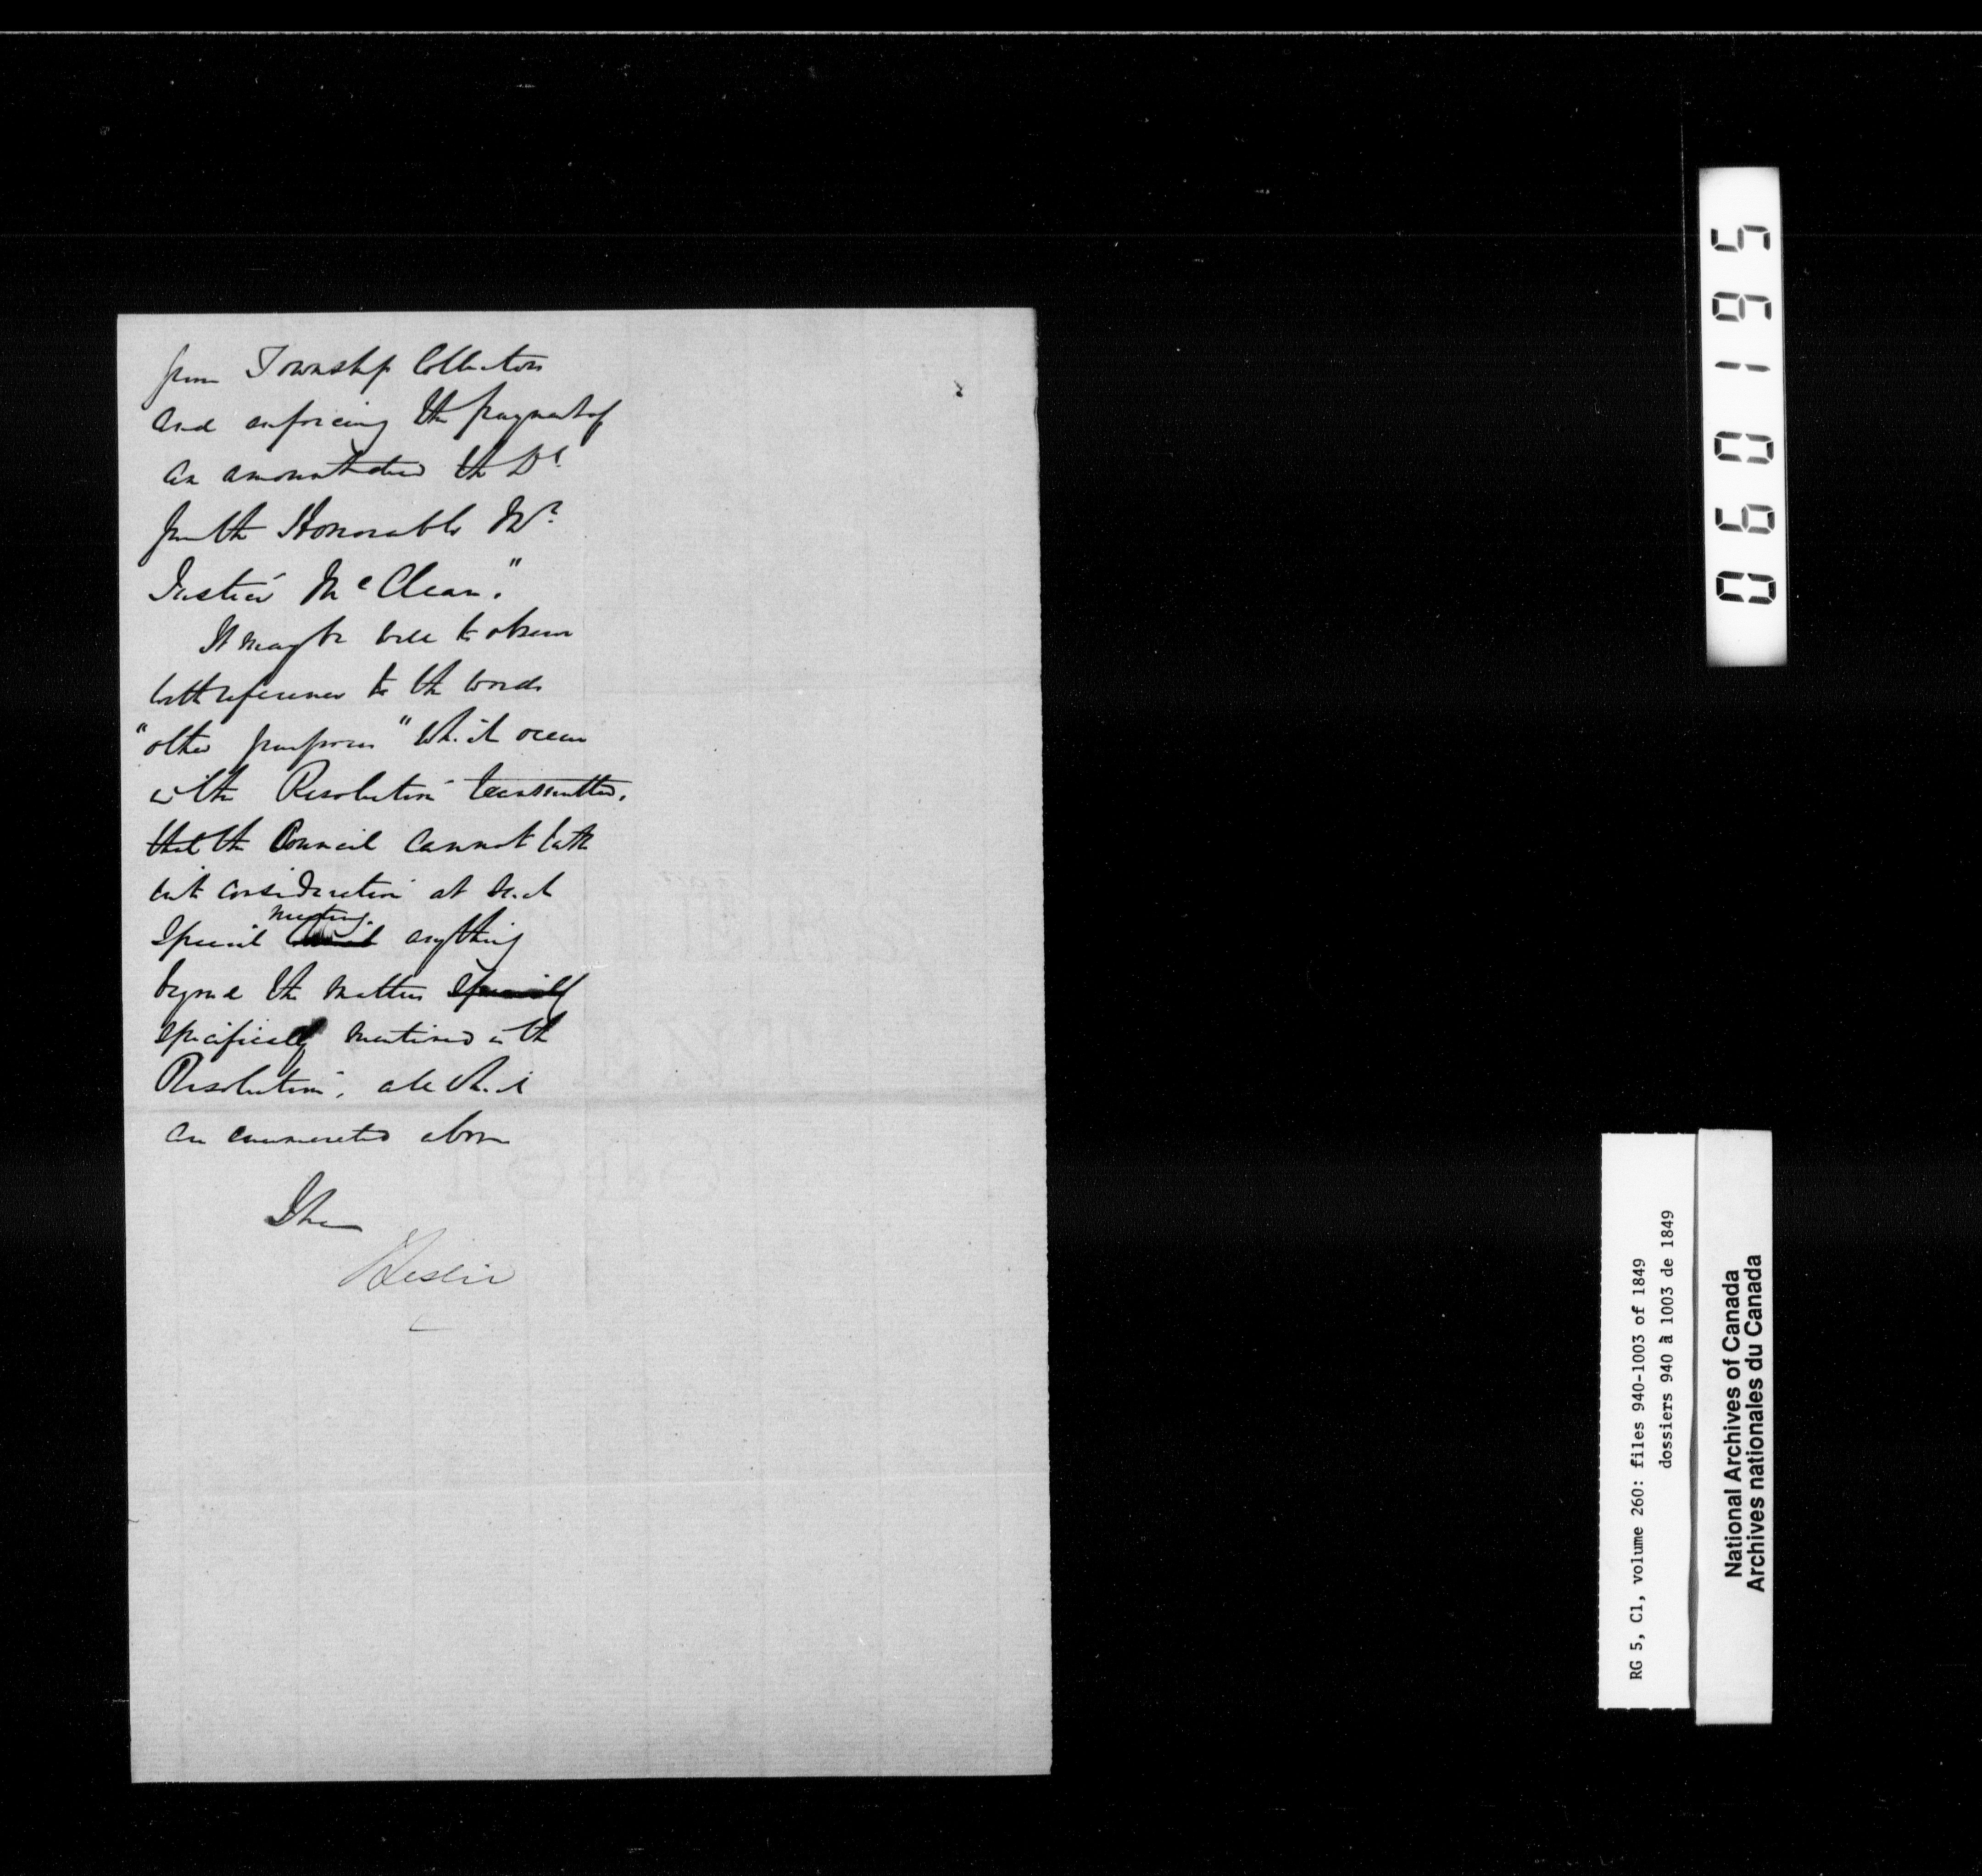 from Township Collectors
and enforcing the payment of
an amount due the Dt.
from the Honorable Mr.
Justice McClean."
It may be well to observe
with reference to the words
"other purposes" which occur
in the Resolution transmitted,
that the Council cannot take
into consideration at such
meeting.
Special anything
beyond the matters
specifically mentioned in the
Resolution, all which
are enumerated above
I have
Leslie
060195
RG 5, C1, volume 260: files 940-1003 of 1849
dossiers 940 à 1003 de 1849
National Archives of Canada
Archives nationales du Canada